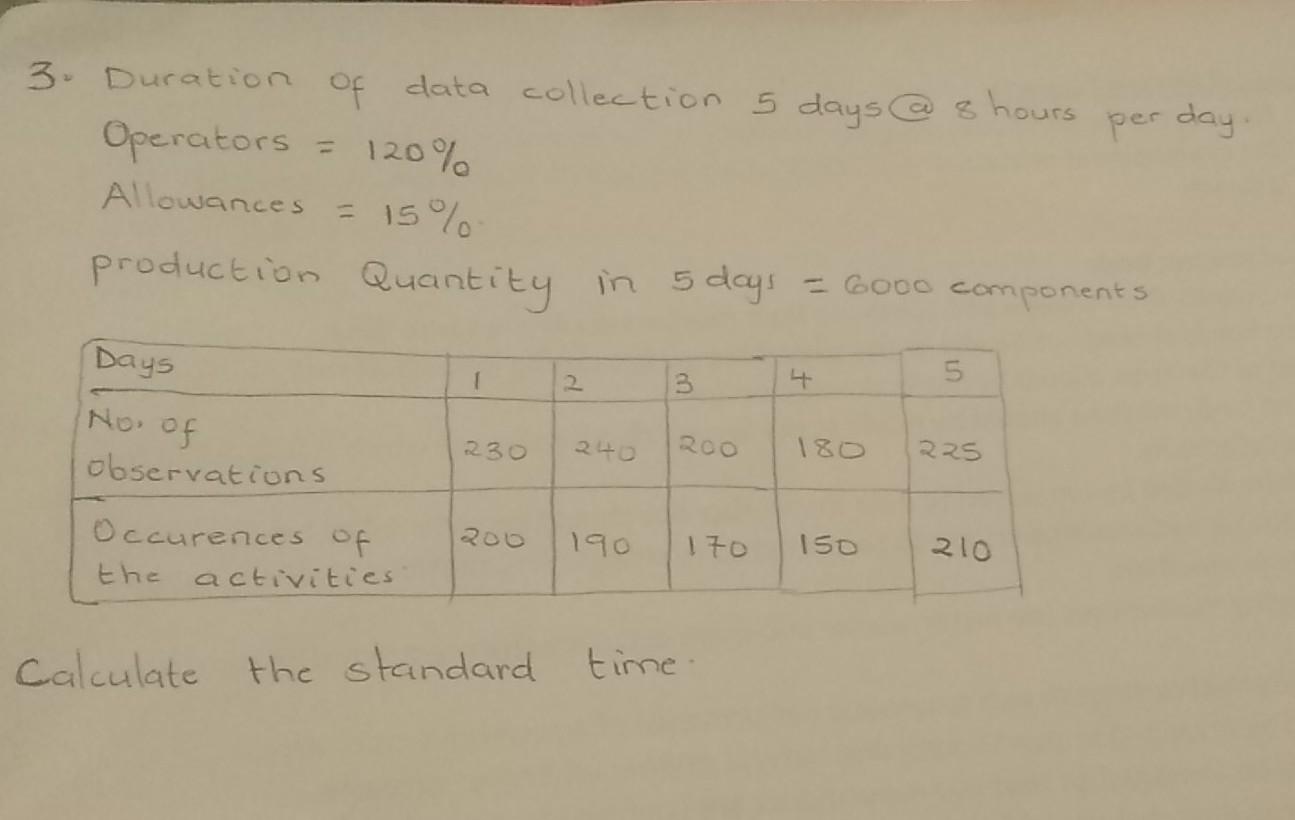 3. Duration of data collection 5 days @ 8 hours per day.
Operators = 120%
Allowances = 15%.
production Quantity in 5 days = 6000 components
Days 1 2 3 4 5
No. of
observations 230 240 200 180 225
Occurences of
the activities 200 190 170 150 210
Calculate the standard time.